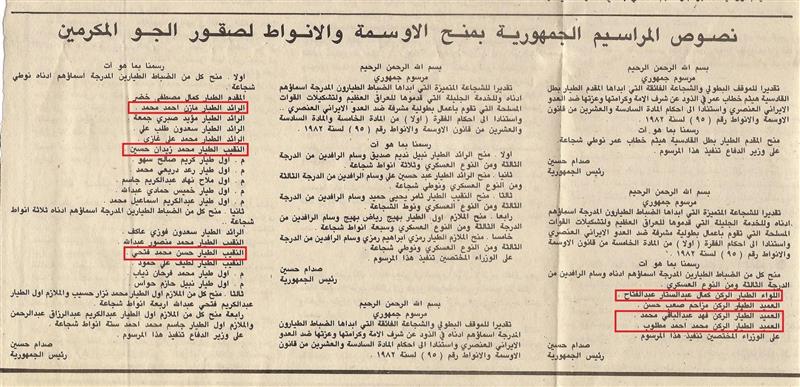 نصوص المراسيم الجمهورية بمنح الاوسمة والانواط لصقور الجو المكرمين
بسم الله الرحمن الرحيم
مرسوم جمهوري
تقديرا للشجاعة الفائقة التي ابداها الضابط الطيار بطل
القادسية هيثم خطاب عمر في الذود عن شرف الامة وكرامتها وعزتها ضد العدو
الايراني العنصري واستنادا الى احكام المادة السادسة والعشرين
من قانون الاوسمة والانواط رقم (٩٥) لسنة ١٩٨٢
رسمنا بما هو آت
منح المقدم الطيار بطل القادسية هيثم خطاب عمر نوطي شجاعة .
على وزير الدفاع تنفيذ هذا المرسوم .
صدام حسين
رئيس الجمهورية
بسم الله الرحمن الرحيم
مرسوم جمهوري
تقديرا للشجاعة المتميزة التي ابداها الضباط الطيارون المدرجة اسماؤهم
ادناه وللخدمة الجليلة التي قدموها للعراق العظيم ولتشكيلات القوات
المسلحة التي تقوم باعمال بطولية مشرفة ضد العدو الايراني العنصري
واستنادا الى احكام الفقرة (اولا) من المادة الخامسة من قانون الاوسمة
والانواط رقم (٩٥) لسنة ١٩٨٢ .
رسمنا بما هو آت
منح كل من الضباط الطيارين المدرجة اسماؤهم ادناه وسام الرافدين من
الدرجة الثالثة ومن النوع العسكري .
اللواء الطيار الركن كمال عبدالستار عبدالفتاح .
العميد الطيار الركن مزاحم صعب حسن .
العميد الطيار الركن فهد عبدالباقي محمد .
العميد الطيار الركن محمد احمد مطلوب .
على الوزراء المختصين تنفيذ هذا المرسوم .
صدام حسين
رئيس الجمهورية
بسم الله الرحمن الرحيم
مرسوم جمهوري
تقديرا للشجاعة المتميزة التي ابداها الضباط الطيارون المدرجة اسماؤهم
ادناه وللخدمة الجليلة التي قدموها للعراق العظيم ولتشكيلات القوات
المسلحة التي تقوم باعمال بطولية مشرفة ضد العدو الايراني العنصري
واستنادا الى احكام الفقرة (اولا) من المادة الخامسة والمادة السادسة
والعشرين من قانون الاوسمة والانواط رقم (٩٥) لسنة ١٩٨٢
رسمنا بما هو آت
اولا . منح الرائد الطيار نبيل نديم صديق وسام الرافدين من الدرجة
الثالثة ومن النوع العسكري وثلاثة انواط شجاعة .
ثانيا . منح الرائد الطيار عبد حسين علي وسام الرافدين من الدرجة الثالثة
ومن النوع العسكري ونوطي شجاعة .
ثالثا . منح النقيب الطيار ثامر يحيى حميد وسام الرافدين من الدرجة
الثالثة ومن النوع العسكري ونوط شجاعة .
رابعا . منح الملازم الاول الطيار بهيج رياض بهيج وسام الرافدين من
الدرجة الثالثة ومن النوع العسكري وسبعة انواط شجاعة .
خامسا . منح الملازم الطيار رمزي ابراهيم رمزي وسام الرافدين من الدرجة
الثالثة ومن النوع العسكري
على الوزراء المختصين تنفيذ هذا المرسوم .
صدام حسين
رئيس الجمهورية
بسم الله الرحمن الرحيم
مرسوم جمهوري
تقديرا للموقف البطولي والشجاعة الفائقة التي ابداها الضباط الطيارون
المدرجة اسماؤهم ادناه في الذود عن شرف الامة وكرامتها وعزتها ضد العدو
الايراني العنصري واستنادا الى احكام المادة السادسة والعشرين من قانون
الاوسمة والانواط رقم (٩٥) لسنة ١٩٨٢ .
رسمنا بما هو آت
اولا . منح كل من الضباط الطيارين المدرجة اسماؤهم ادناه نوطي
شجاعة .
المقدم الطيار كمال مصطفى خضر .
الرائد الطيار مازن احمد محمد .
الرائد الطيار مؤيد صبري جمعة
الرائد الطيار سعدون طلب علي
الرائد الطيار محمد علي غازي .
النقيب الطيار محمد زيدان حسين
م . اول طيار كريم صالح سهو
م . اول طيار رعد دريعي محمد
م . اول ملاح نهاد عبدالكريم جاسم
م . اول طيار خميس حمادي عبدالله .
م . اول طيار عبدالكريم اسماعيل محمد .
ثانيا . منح كل من الضباط الطيارين المدرجة اسماؤهم ادناه ثلاثة انواط
شجاعة .
الرائد الطيار سعدون فوزي عاكف .
النقيب الطيار محمد منصور عبدالله
النقيب الطيار حسن محمد فتحي .
النقيب الطيار لطيف علي حمود
م . اول طيار محمد فرحان ذياب .
م . اول طيار نبيل حازم حواس
ثالثا . منح كل من الملازم الاول الطيار محمد نزار حسيب والملازم اول الطيار
عبدالكريم فتحي عبدالله اربعة انواط شجاعة .
رابعة منح كل من الملازم الاول الطيار عبدالكريم عبدالرزاق عبدالرحمن
والملازم الاول الطيار جاسم محمد احمد ستة انواط شجاعة .
على وزير الدفاع تنفيذ هذا المرسوم .
صدام حسين
رئيس الجمهورية